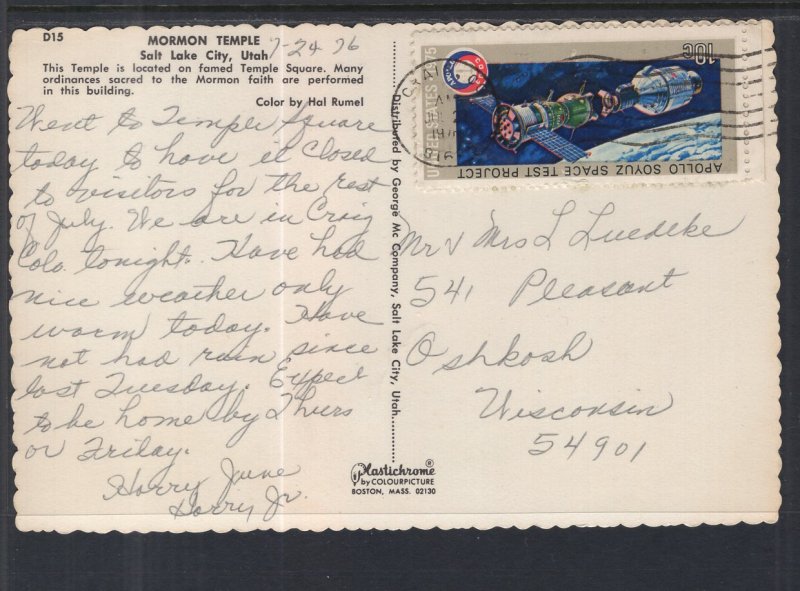 D15
MORMON TEMPLE
7-24 76
Salt Lake City, Utah
This Temple is located on famed Temple Square. Many
ordinances sacred to the Mormon faith are performed
in this building.
Color by Hal Rumel
Went to Temple Square
today to have it closed
to visitors for the rest
of July. We are in Craig
Colo. tonight. Have had
nice weather only
warm today. Have
not had rain since
last Tuesday. Expect
to be home by Thurs
or Friday.
Harry June
Harry Jr.
Distributed by George Mc Company, Salt Lake City, Utah.
Plastichrome®
by COLOURPICTURE
BOSTON, MASS. 02130
UNITED STATES 1975
10c
APOLLO SOYUZ SPACE TEST PROJECT
CRAIG
Mr & Mrs L Luedtke
541 Pleasant
Oshkosh
Wisconsin
54901